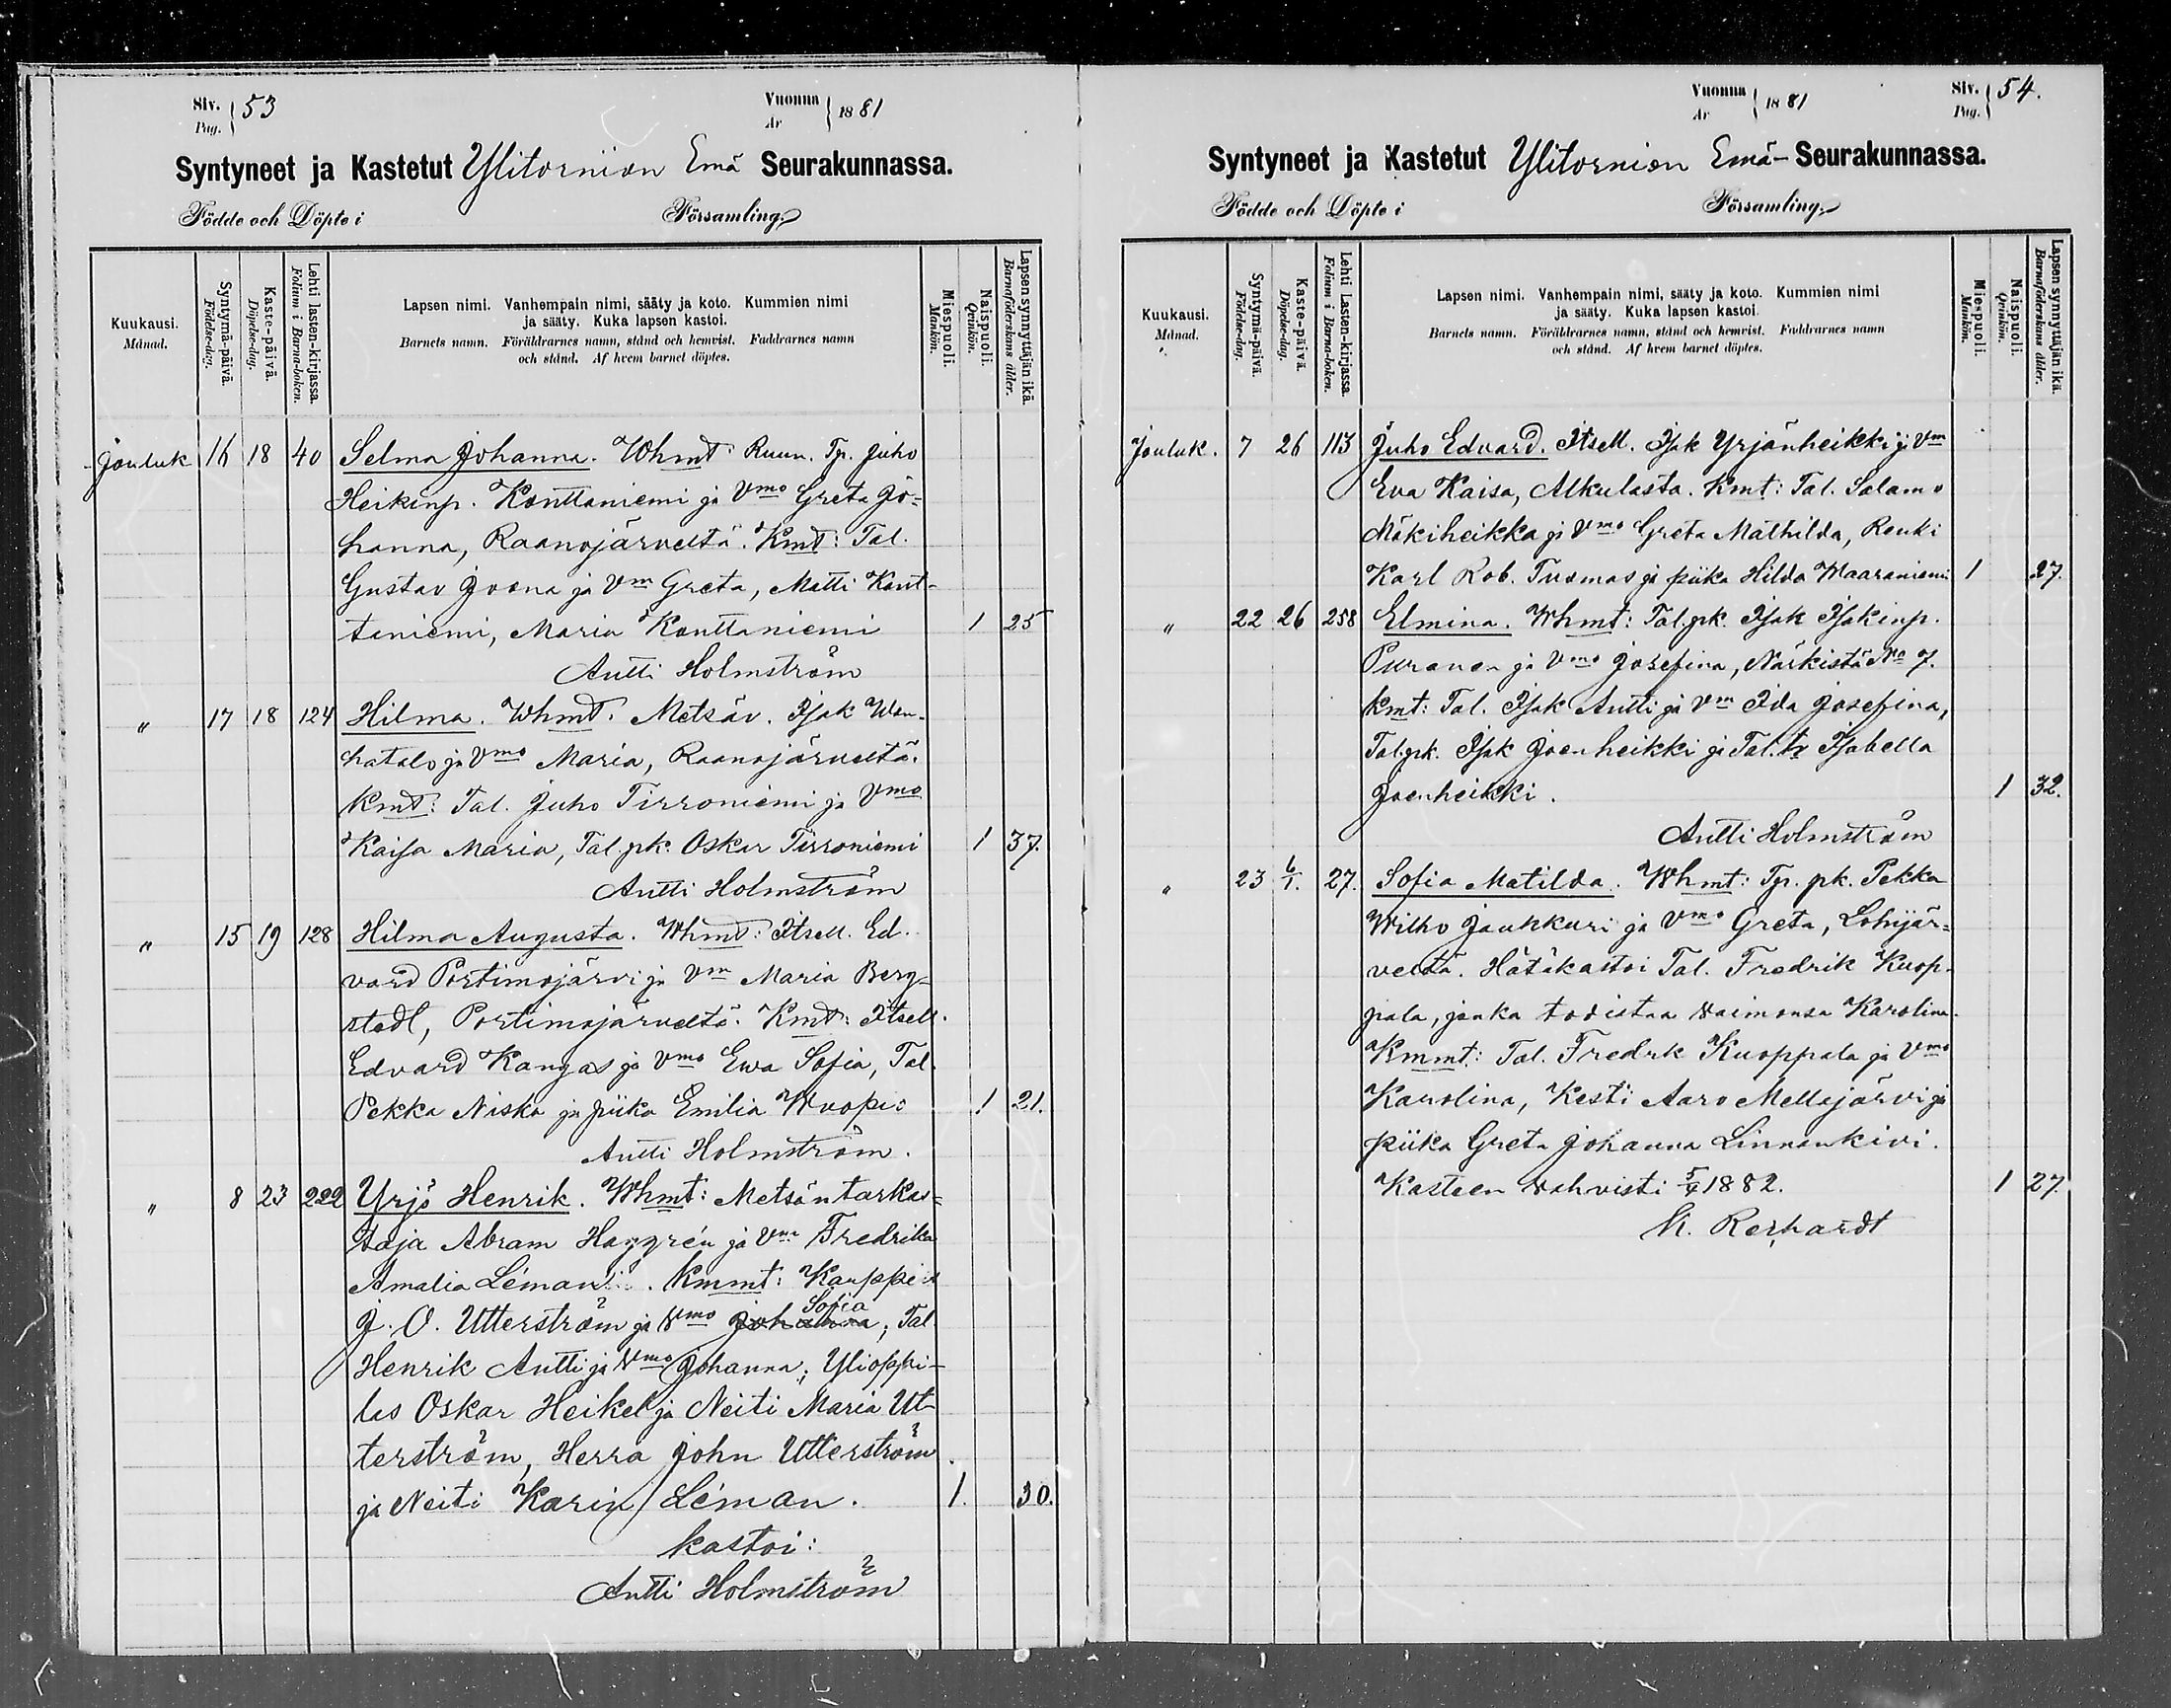 Siv. 53
Pag.
Vuonna 1881
År
Syntyneet ja Kastetut Ylitornion Emä Seurakunnassa.
Födde och Döpte i Församling.
Kuukausi.
Månad.
Syntymä-päivä.
Födelse-dag.
Kaste-päivä.
Döpelse-dag.
Lehti lasten-kirjassa.
Folium i Barna-boken.
Lapsen nimi. Vanhempain nimi, sääty ja koto. Kummien nimi
ja sääty. Kuka lapsen kastoi.
Barnets namn. Föräldrarnes namn, stånd och hemvist. Faddrarnes namn
och stånd. Af hvem barnet döptes.
Miespuoli.
Mankön.
Naispuoli.
Qvinkön.
Lapsen synnyttäjän ikä.
Barnaföderskans ålder.
Jouluk 16 18 40 Selma Johanna. Whmt: Ruun. Tp. Juho
Heikinp. Konttaniemi ja Vmo Greta Jo-
hanna, Raanojärveltä. Kmt: Tal.
Gustav Joona ja Vm Greta, Matti Kont-
taniemi, Maria Konttaniemi 1 25
Antti Holmström
" 17 18 124 Hilma. Whmt. Metsäv. Isak Wan-
hatalo ja Vmo Maria, Raanojärveltä.
Kmt: Tal. Juho Tirroniemi ja Vmo
Kaisa Maria, Tal. pk. Oskar Tirroniemi 1 37.
Antti Holmström
" 15 19 128 Hilma Augusta. Whmt: Itsell. Ed-
vard Portimojärvi ja Vm Maria Berg-
stedt, Portimojärveltä. Kmt: Itsell.
Edvard Kangas ja Vmo Ewa Sofia, Tal.
Pekka Niska ja piika Emilia Wuopio 1 21.
Antti Holmström.
" 8 23 222 Yrjö Henrik. Whmt: Metsäntarkas-
taja Abram Haggrén ja Vm Fredrika
Amalia Léman. Kmmt: Kauppias
J. O. Utterström ja Vmo Johanna Sofia, Tal
Henrik Antti ja Vmo Johanna; Ylioppi-
las Oskar Heikel ja Neiti Maria Ut-
terström, Herra John Utterström
ja Neiti Karin Léman. 1. 30.
kastoi:
Antti Holmström
Vuonna 1881
År
Siv. 54.
Pag.
Syntyneet ja Kastetut Ylitornion Emä- Seurakunnassa.
Födde och Döpte i Församling.
Kuukausi.
Månad.
Syntymä-päivä.
Födelse-dag.
Kaste-päivä.
Döpelse-dag.
Lehti Lasten-kirjassa.
Folium i Barna-boken.
Lapsen nimi. Vanhempain nimi, sääty ja koto. Kummien nimi
ja sääty. Kuka lapsen kastoi.
Barnets namn. Föräldrarnes namn, stånd och hemvist. Faddrarnes namn
och stånd. Af hvem barnet döptes.
Miespuoli.
Mankön.
Naispuoli.
Qvinkön.
Lapsen synnyttäjän ikä.
Barnaföderskans ålder.
Jouluk. 7 26 113 Juho Edvard. Itsell. Isak Yrjänheikki ja Vm
Eva Kaisa, Alkulasta. Kmt: Tal. Salamo
Mäkiheikka ja Vmo Greta Mathilda, Renki
Karl Rob. Tuomas ja piika Hilda Waaraniemi 1 27.
" 22 26 258 Elmina. Whmt: Tal. pk. Isak Isakinp.
Puranen ja Vmo Josefina, Närkistä No 7.
Kmt: Tal. Isak Antti ja Vm Ida Josefina,
Tal. pk. Isak Joenheikki ja Tal. tr Isabella
Joenheikki. 1 32.
Antti Holmström
" 23 6/1. 27. Sofia Matilda. Whmt: Tp. pk. Pekka
Wilho Jaukkuri ja Vmo Greta, Lohijär-
veltä. Hätäkastoi Tal. Fredrik Kuop-
pala, jonka todistaa vaimonsa Karolina.
Kmmt: Tal. Fredrk Kuoppala ja Vmo
Karolina, Kesti Aaro Mellajärvi ja
piika Greta Johanna Linnankivi.
Kasteen vahvisti 5/4 1882. 1 27.